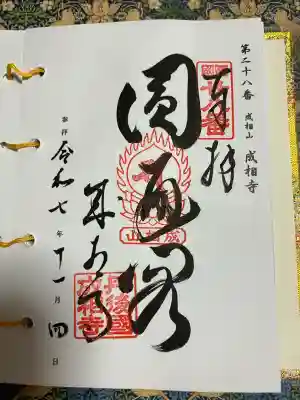 第二十八番 成相山 成相寺
奉拝
圓通閣
成相山
成相寺
丹後國成相寺
奉拝 令和七年十一月四日